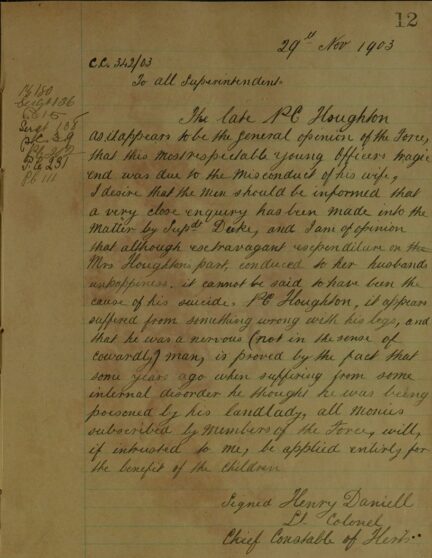 12
29th Nov 1903
C.C. 342/03
To all Superintendents
The late PC Houghton
as it appears to be the general opinion of the Force,
that this most respectable young Officers tragic
end was due to the misconduct of his wife,
I desire that the Men should be informed that
a very close enquiry has been made into the
matter by Supdt Duke, and I am of opinion
that although extravagant expenditure on the
Mrs Houghtons part, conduced to her husbands
unhappiness, it cannot be said to have been the
cause of his suicide. PC Houghton, it appears
suffered from something wrong with his legs, and
that he was a nervous (not in the sense of
cowardly) man, is proved by the fact that
some years ago when suffering from some
internal disorder he thought he was being
poisoned by his landlady, all monies
subscribed by Members of the Force, will,
if intrusted to me, be applied entirely for
the benefit of the children
Signed Henry Daniell
Lt Colonel
Chief Constable of Herts
Sergt 136
Sergt 135
PC 39
PC 231